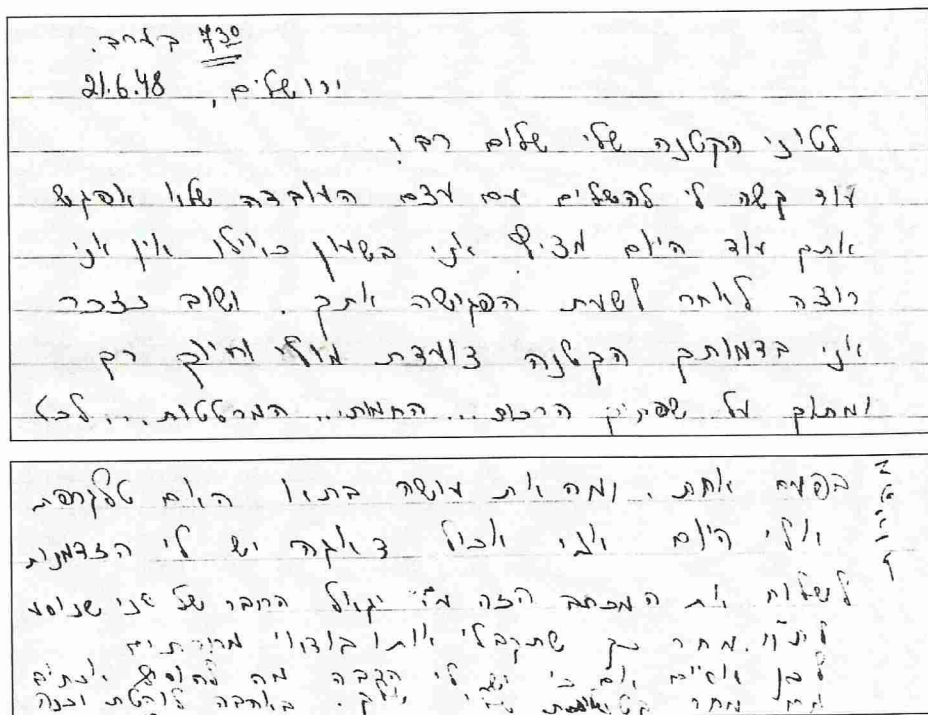 730 בערב.
ירושלים, 21.6.48
לטוני הקטנה שלי שלום רב!
עוד קשה לי להשלים עם עצם העובדה שלא אפגש
אתך עוד היום אני בשעון כאילו אין אני
רוצה לאחר לשעת הפגישה אתך. ושוב נזכר
אני בדמותך הקטנה צועדת מולי וחיוך רך
ומתוק על שפתיך הרכות.. החמות.. המרטטות..
בפעם אחת. ומה את עושה בת"א האם טלגרפת
אלי היום אני אכול דאגה יש לי הזדמנות
לשלוח את המכתב הזה ע"י יגאל החבר של שני שנוסע
לת"א מחר כך שתקבלי אותו בודאי
לכן אסיים אם כי יש לי הרבה מה להוסיף
מחר באהבה לוהטת וכנה